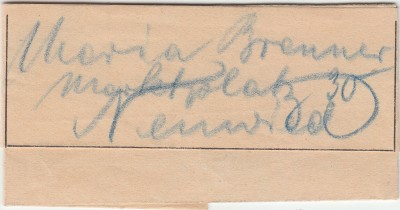 Maria Brenner
Marktplatz 30
Neuwied